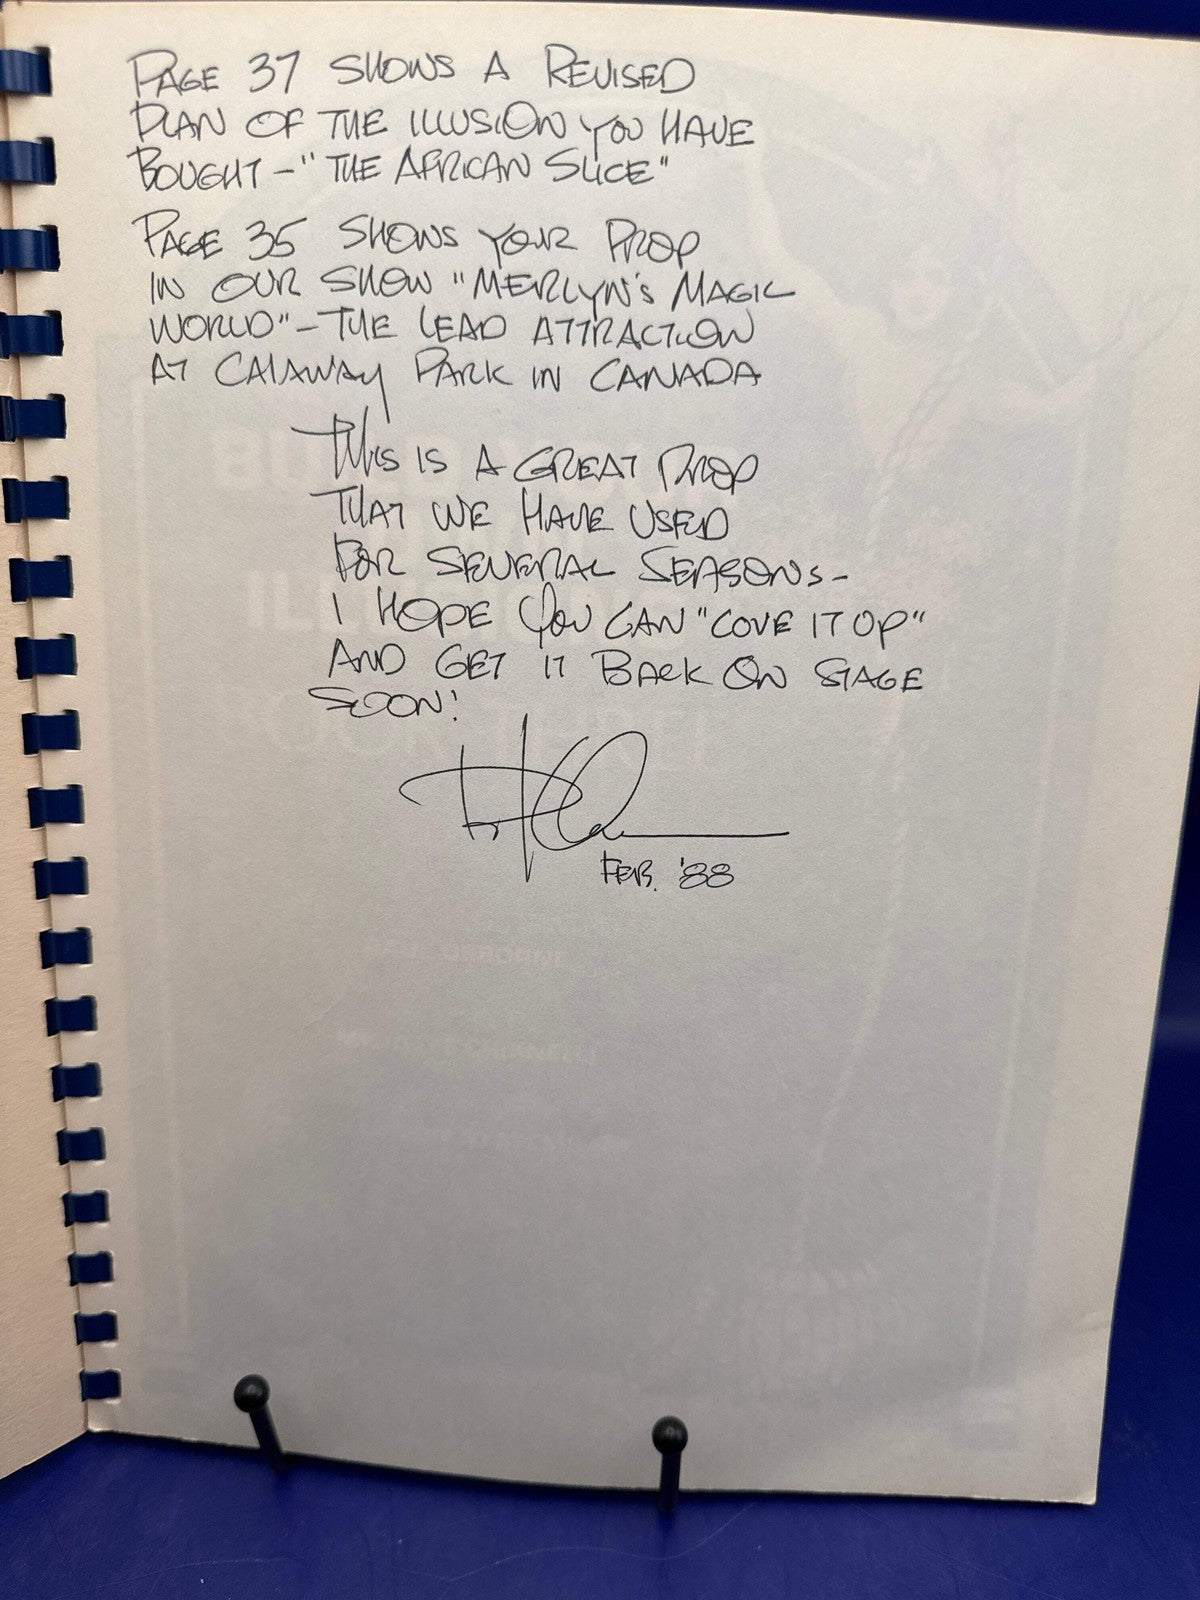 PAGE 37 SHOWS A REVISED
PLAN OF THE ILLUSION YOU HAVE
BOUGHT - "THE AFRICAN SLICE"
PAGE 35 SHOWS YOUR PROP
IN OUR SHOW "MERLYN'S MAGIC
WORLD" - THE LEAD ATTRACTION
AT CALAWAY PARK IN CANADA
THIS IS A GREAT PROP
THAT WE HAVE USED
FOR SEVERAL SEASONS -
I HOPE YOU CAN "COVE IT UP"
AND GET IT BACK ON STAGE
SOON!
FEB. '88